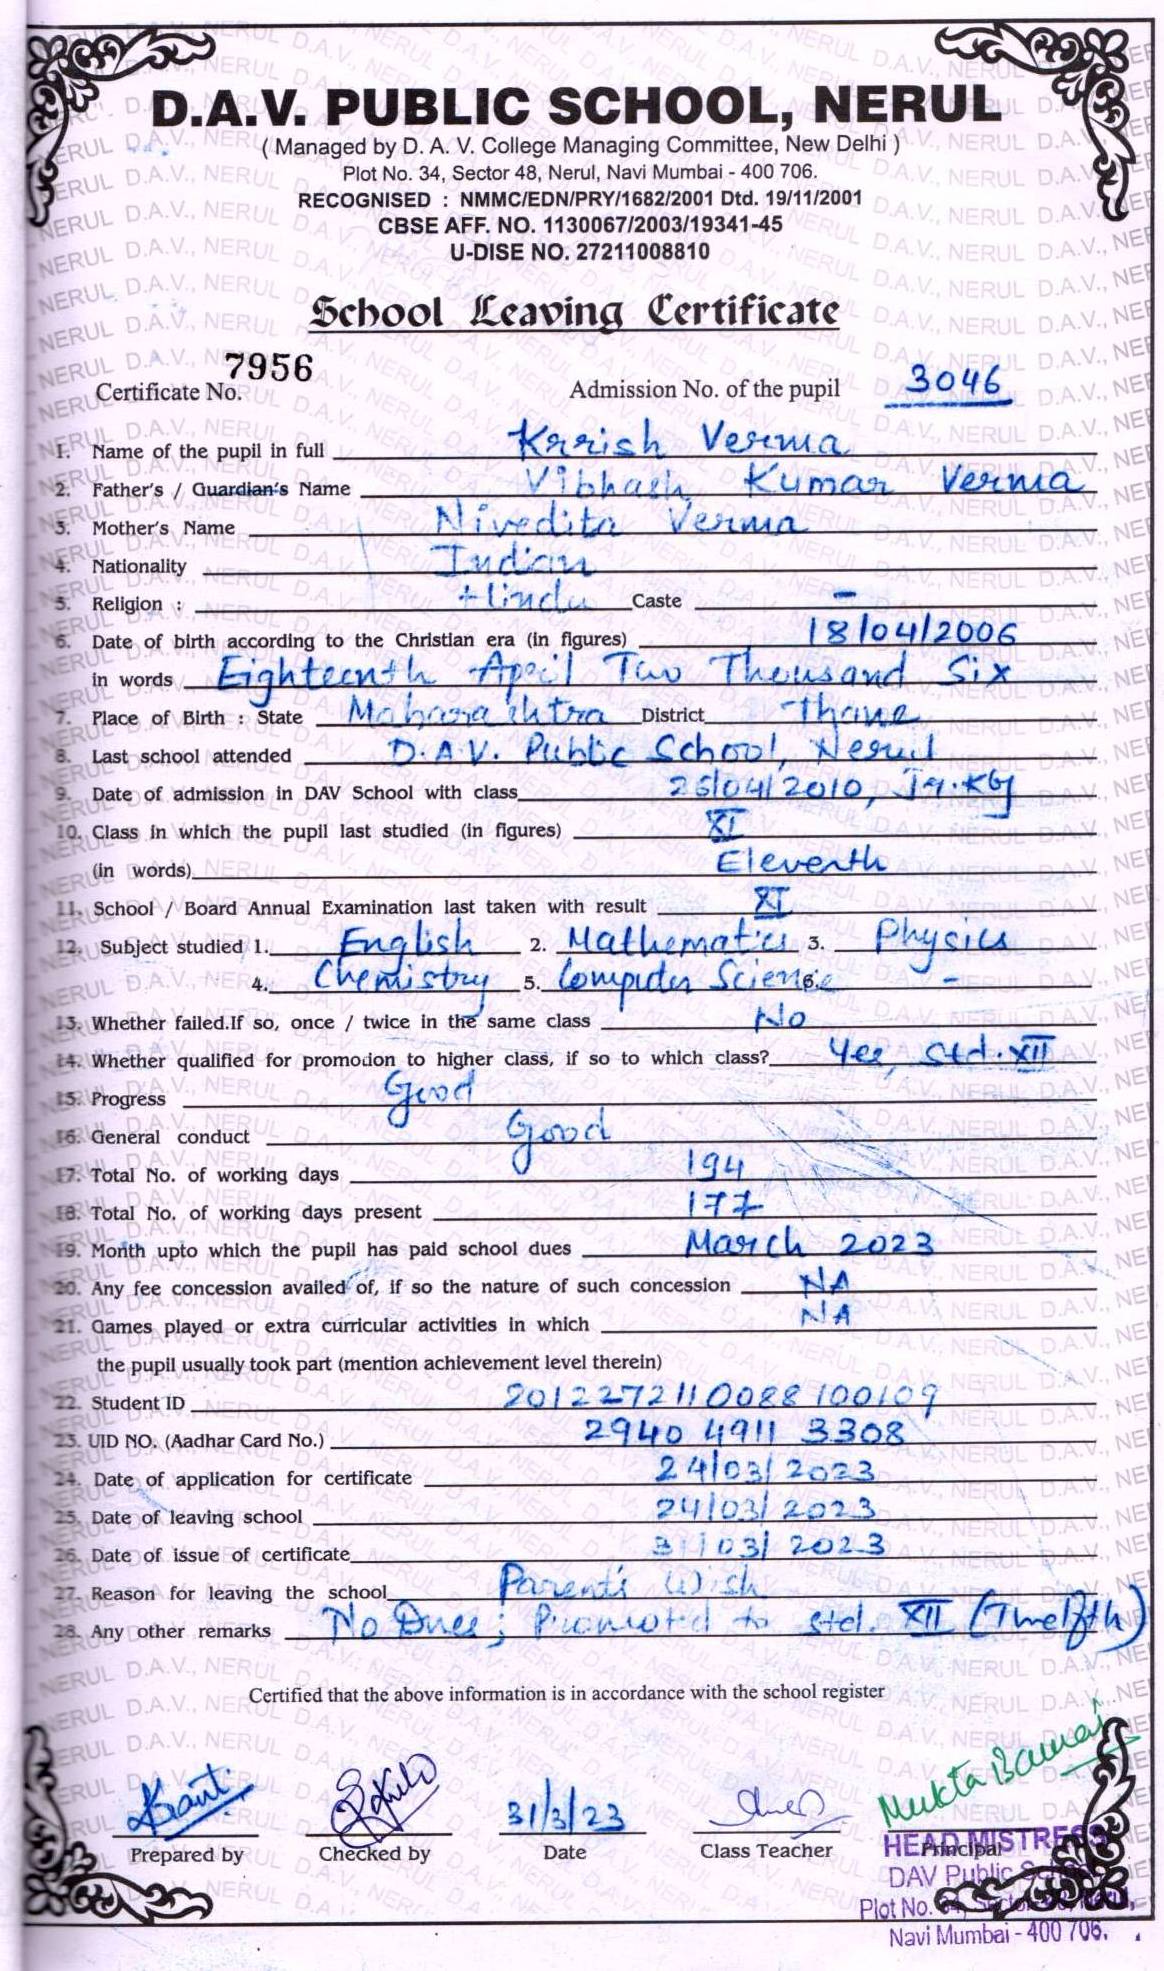 D.A.V. PUBLIC SCHOOL, NERUL
( Managed by D. A. V. College Managing Committee, New Delhi )
Plot No. 34, Sector 48, Nerul, Navi Mumbai - 400 706.
RECOGNISED : NMMC/EDN/PRY/1682/2001 Dtd. 19/11/2001
CBSE AFF. NO. 1130067/2003/19341-45
U-DISE NO. 27211008810
School Leaving Certificate
Certificate No. 7956 Admission No. of the pupil 3046
1. Name of the pupil in full Krrish Verma
2. Father's / Guardian's Name Vibhash Kumar Verma
3. Mother's Name Nivedita Verma
4. Nationality Indian
5. Religion : Hindu Caste -
6. Date of birth according to the Christian era (in figures) 18/04/2006
in words Eighteenth April Two Thousand Six
7. Place of Birth : State Maharashtra District Thane
8. Last school attended D.A.V. Public School, Nerul
9. Date of admission in DAV School with class 26/04/2010, Jr.KG
10. Class in which the pupil last studied (in figures) XI
(in words) Eleventh
11. School / Board Annual Examination last taken with result XI
12. Subject studied 1. English 2. Mathematics 3. Physics
4. Chemistry 5. Computer Science 6. -
13. Whether failed.If so, once / twice in the same class No
14. Whether qualified for promodon to higher class, if so to which class? Yes, Std. XII
15. Progress Good
16. General conduct Good
17. Total No. of working days 194
18. Total No. of working days present 177
19. Month upto which the pupil has paid school dues March 2023
20. Any fee concession availed of, if so the nature of such concession NA
21. Games played or extra curricular activities in which NA
the pupil usually took part (mention achievement level therein)
22. Student ID 2012272110088100109
23. UID NO. (Aadhar Card No.) 2940 4911 3308
24. Date of application for certificate 24/03/2023
25. Date of leaving school 24/03/2023
26. Date of issue of certificate 31/03/2023
27. Reason for leaving the school Parent's Wish
28. Any other remarks No Dues; Promoted to Std. XII (Twelfth)
Certified that the above information is in accordance with the school register
31/3/23
Prepared by Checked by Date Class Teacher Principal
HEAD MISTRESS
DAV Public School
Plot No. 34, Sector-48, Nerul,
Navi Mumbai - 400 706.